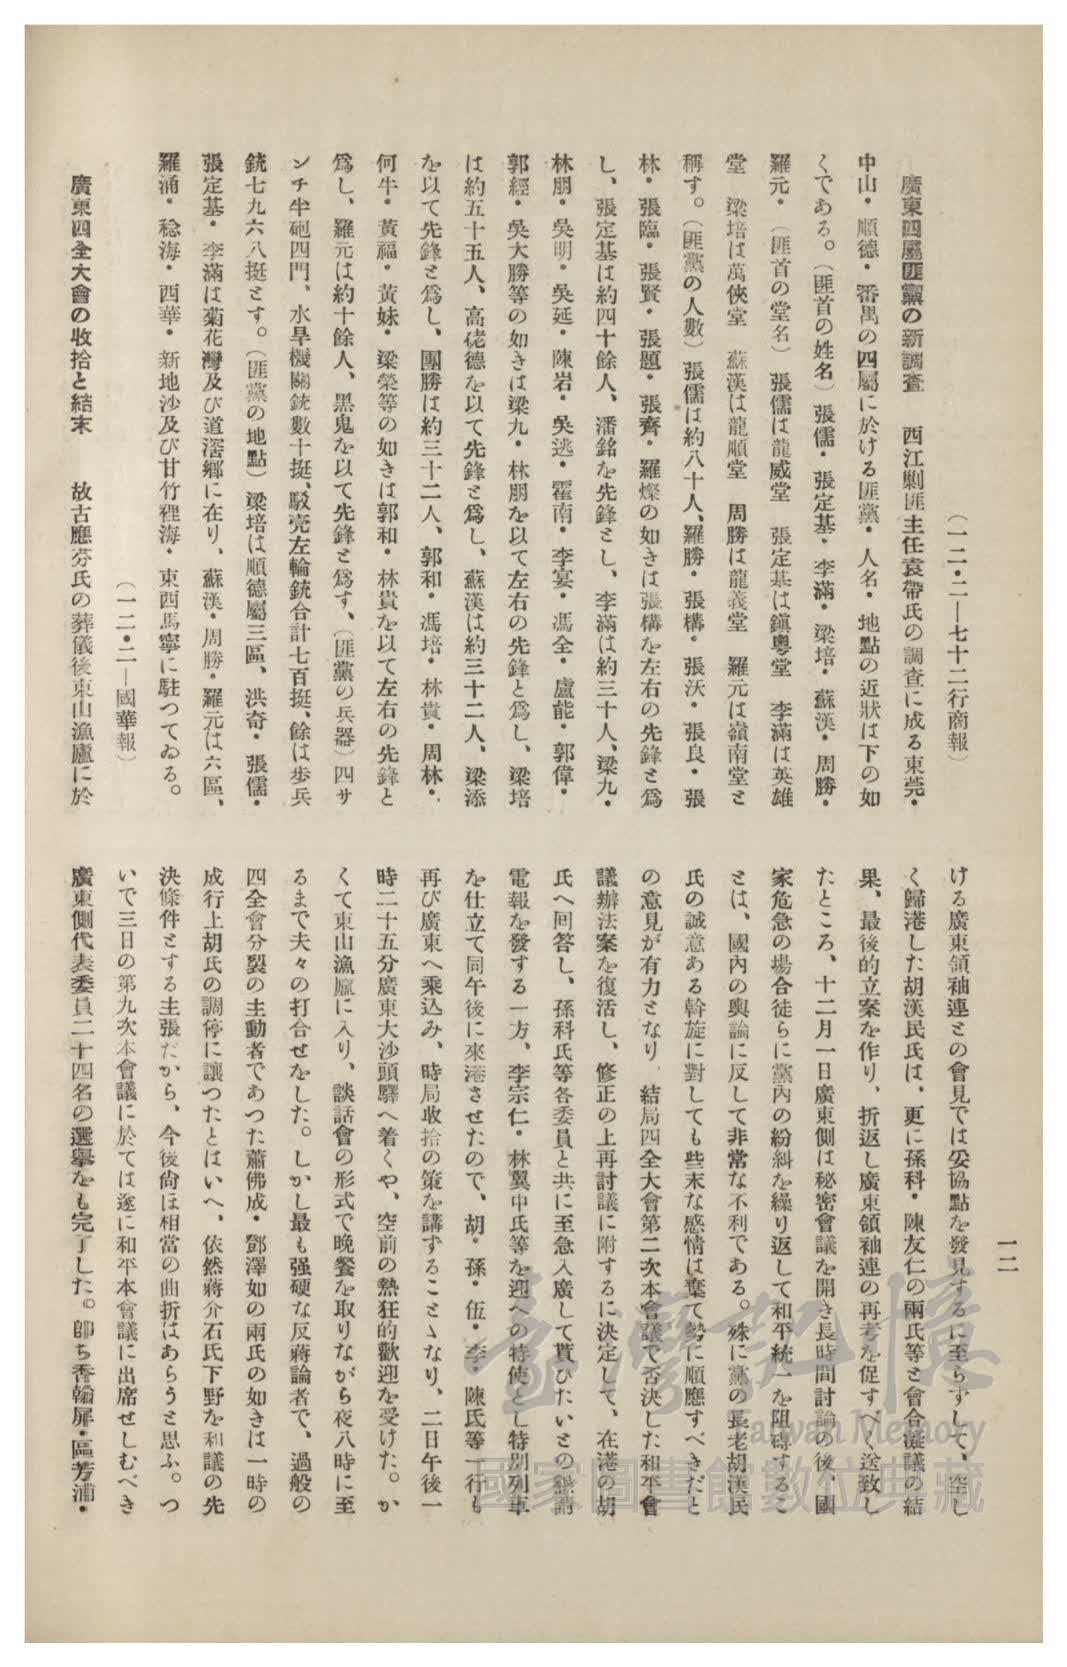 一二
(一二・二―七十二行商報)
廣東四屬匪黨の新調査　西江剿匪主任袁帶氏の調査に成る東莞・
中山・順德・番禺の四屬に於ける匪黨・人名・地點の近狀は下の如
くである。(匪首の姓名)張儒・張定基・李滿・梁培・蘇漢・周勝・
羅元・(匪首の堂名)張儒は龍威堂　張定基は鎭粤堂　李滿は英雄
堂　梁培は萬俠堂　蘇漢は龍順堂　周勝は龍義堂　羅元は嶺南堂と
稱す。(匪黨の人數)張儒は約八十人、羅勝・張構・張沃・張良・張
林・張臨・張賢・張題・張齊・羅燦の如きは張構を左右の先鋒と爲
し、張定基は約四十餘人、潘銘を先鋒とし、李滿は約三十人、梁九・
林朋・吳明・吳延・陳岩・吳逃・霍南・李宴・馮全・盧能・郭偉・
郭經・吳大勝等の如きは梁九・林朋を以て左右の先鋒と爲し、梁培
は約五十五人、高佬德を以て先鋒と爲し、蘇漢は約三十二人、梁添
を以て先鋒と爲し、團勝は約三十二人、郭和・馮培・林貴・周林・
何牛・黃福・黃妹・梁榮等の如きは郭和・林貴を以て左右の先鋒と
爲し、羅元は約十餘人、黑鬼を以て先鋒と爲す、(匪黨の兵器)四サ
ンチ半砲四門、水旱機關銃數十挺、駁壳左輪銃合計七百挺、餘は步兵
銃七九六八挺とす。(匪黨の地點)梁培は順德屬三區、洪奇・張儒・
張定基・李滿は菊花灣及び道滘鄕に在り、蘇漢・周勝・羅元は六區、
羅涌・稔海・西華・新地沙及び甘竹裡海・東西馬寧に駐つてゐる。
(一二・二―國華報)
廣東四全大會の收拾と結末　故古應芬氏の葬儀後東山漁廬に於
ける廣東領袖連との會見では妥協點を發見するに至らずして、空し
く歸港した胡漢民氏は、更に孫科・陳友仁の兩氏等と會合凝議の結
果、最後的立案を作り、折返し廣東領袖連の再考を促すべく送致し
たところ、十二月一日廣東側は秘密會議を開き長時間討論の後、國
家危急の場合徒らに黨內の紛糾を繰り返して和平統一を阻碍するこ
とは、國內の輿論に反して非常な不利である。殊に黨の長老胡漢民
氏の誠意ある斡旋に對しても些末な感情は棄て勢に順應すべきだと
の意見が有力となり、結局四全大會第二次本會議で否決した和平會
議辦法案を復活し、修正の上再討議に附するに決定して、在港の胡
氏へ回答し、孫科氏等各委員と共に至急入廣して貰ひたいとの懇請
電報を發する一方、李宗仁・林翼中氏等を迎への特使とし特別列車
を仕立て同午後に來港させたので、胡・孫・伍・李・陳氏等一行も
再び廣東へ乘込み、時局收拾の策を講ずることゝなり、二日午後一
時二十五分廣東大沙頭驛へ着くや、空前の熱狂的歡迎を受けた。か
くて東山漁廬に入り、談話會の形式で晩餐を取りながら夜八時に至
るまで夫々の打合せをした。しかし最も强硬な反蔣論者で、過般の
四全會分裂の主動者であつた蕭佛成・鄧澤如の兩氏の如きは一時の
成行上胡氏の調停に讓つたとはいへ、依然蔣介石氏下野を和議の先
決條件とする主張だから、今後尙ほ相當の曲折はあらうと思ふ。つ
いで三日の第九次本會議に於ては遂に和平本會議に出席せしむべき
廣東側代表委員二十四名の選擧をも完了した。卽ち香翰屏・區芳浦・
臺灣記憶
Taiwan Memory
國家圖書館數位典藏